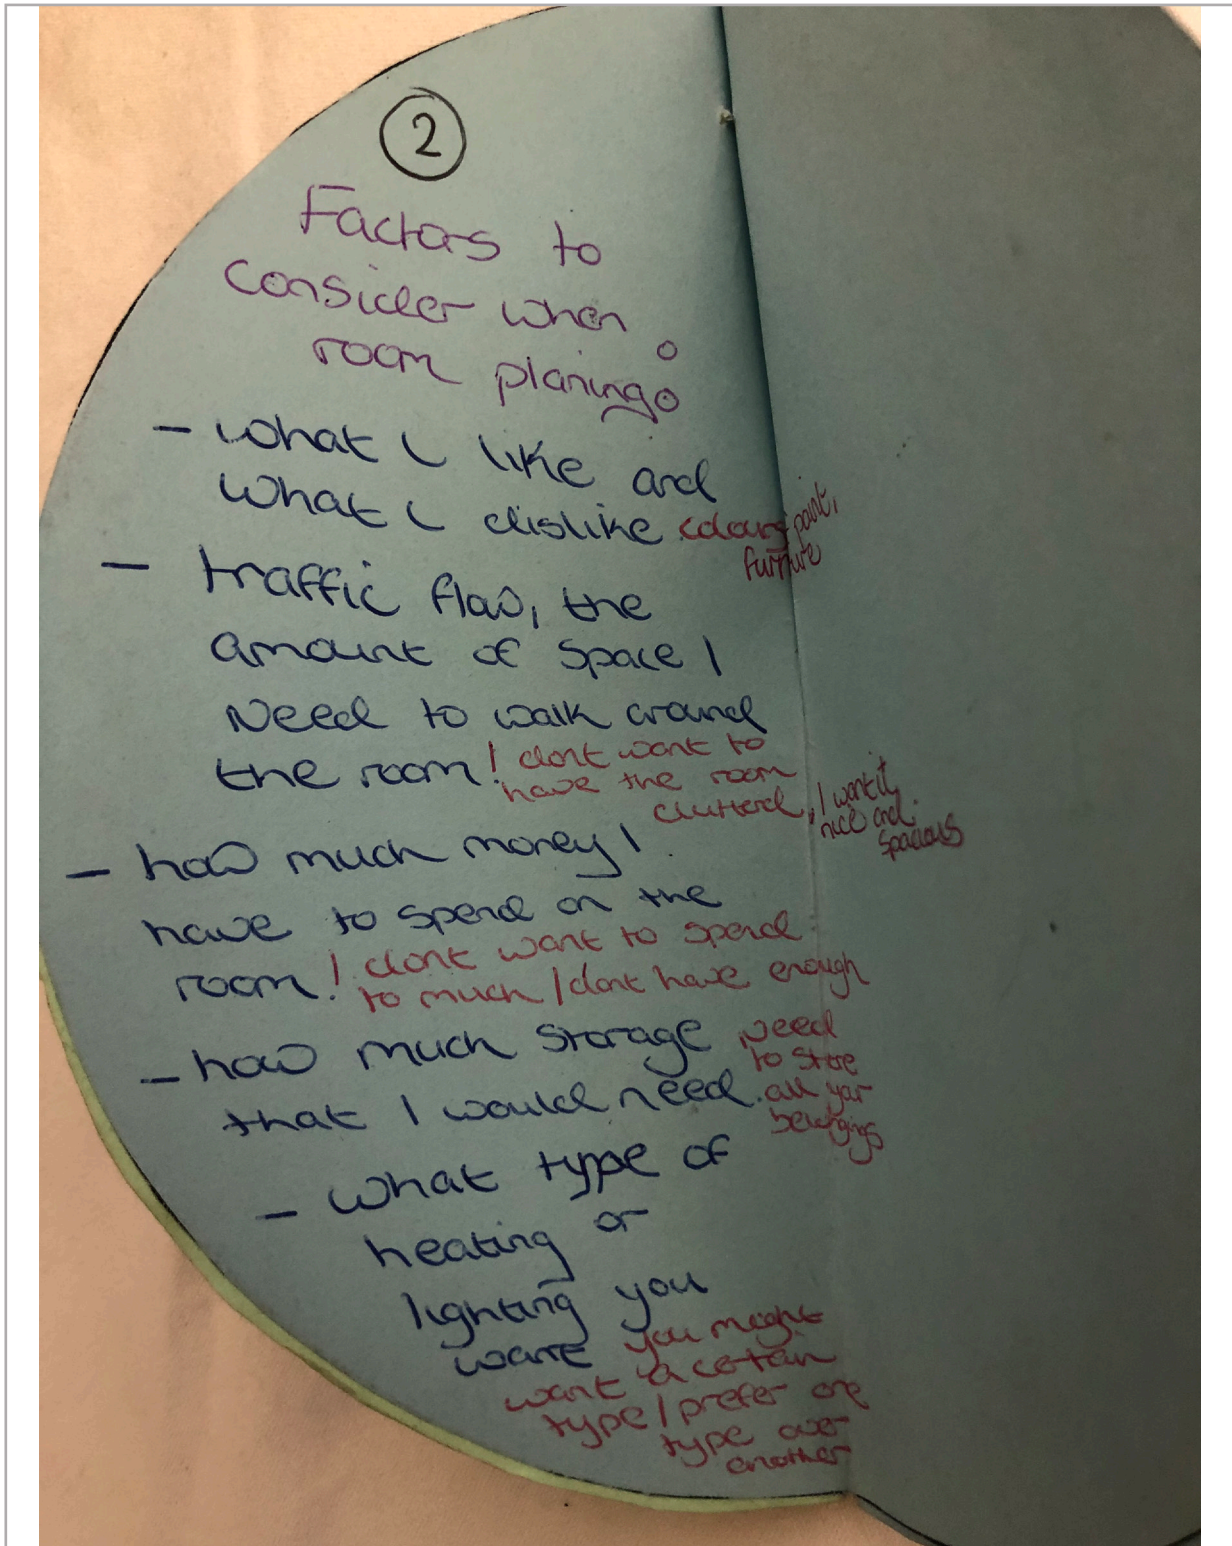 2
Factors to
consider when
room planing:
- what I like and
what I dislike colours paint,
furniture
- traffic flow, the
amount of space I
Need to walk around
the room! I dont want to
have the room
clutterd, I want it
nice and
spacious
- how much money I
have to spend on the
room! I dont want to spend
to much / dont have enough
- how much storage need
to store
that I would need. all your
belongings
- what type of
heating or
lighting you
want you might
want a certain
type / prefer one
type over
another